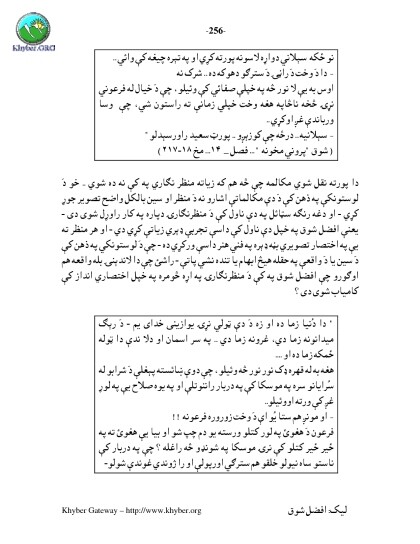 Khyber.ORG
-256-
نو ځکه سېلاني دواړه لاسونه پورته کړي او په تېره چيغه کې وائي..
- دا دَ وخت دَ راتې دَ سترګو دهوکه ده.. شرک نه
اوس به يې لا نور څه په خپلې صفائي کې وئيلو، چې دَ خيال له فرعوني
نړۍ څخه ناڅاپه هغه وخت خپلې زمانې ته راستون شي، چې وسا
ورباندې غږ اوکړي..
- سېلانيه.. درځه چې کوزېږو.. پورټ سعيد راورسېدلو "
( شوق " پروني مخونه " .. فصل... ۱۴... مخ ۱۸-۲۱۷ )
دا پورته نقل شوې مکالمه چې څه هم که زياته منظر نګاري په کې نه ده شوې - خو دَ
لوستونکي په ذهن کې دَ دې مکالماتي اشارو نه دَ منظر او سين بالکل واضح تصوير جوړ
کړي - او دغه رنګه سټائل په دې ناول کې دَ منظرنګارۍ دپاره په کار راوړل شوی دی -
يعنې افضل شوق په خپل دې ناول کې داسې تجربې ډېرې زياتې کړي دي - او هر منظر ته
يې په اختصار تصويري بڼه ډېره په فني هنر داسې ورکړې ده - چې دَ لوستونکي په ذهن کې
دَ سين يا دَ واقعې په حقله هيڅ ابهام يا تنده نشي پاتې - راشئ چې دا لاندېنۍ بله واقعه هم
اوګورو چې افضل شوق په کې دَ منظرنګارۍ په اړه څومره په خپل اختصاري انداز کې
کامياب شوی دی ؟
" دا دُنيا زما ده او زه دَ دې ټولې نړۍ يوازينی خدای يم - دَ رېګ
ميدانونه زما دي، غرونه زما دي .. په سر اسمان او دلاندې دا ټوله
ځمکه زما ده او ....
هغه به له قهره ډک نور نور څه وئيلو، چې دوې ښائسته پېغلې دَ شرابو له
سُرايانو سره په موسکا کې په دربار راننوتلې او په يوه صلاح يې په لوړ
غږ کې ورته اووئيلو..
- او مونږ هم ستا يُو اې دَ وخت زوروره فرعونه !!
فرعون دَ هغوئ په لور کتلو ورسته يو دم چپ شو او بيا يې هغوئ ته په
ځير ځير کتلو کې نرۍ موسکا په شونډو څه راغله ؟ چې په دربار کې
ناستو ساه نيولو خلقو هم سترګې اورپولې او راژوندي غوندې شولو-
Khyber Gateway – http://www.khyber.org
ليک: افضل شوق